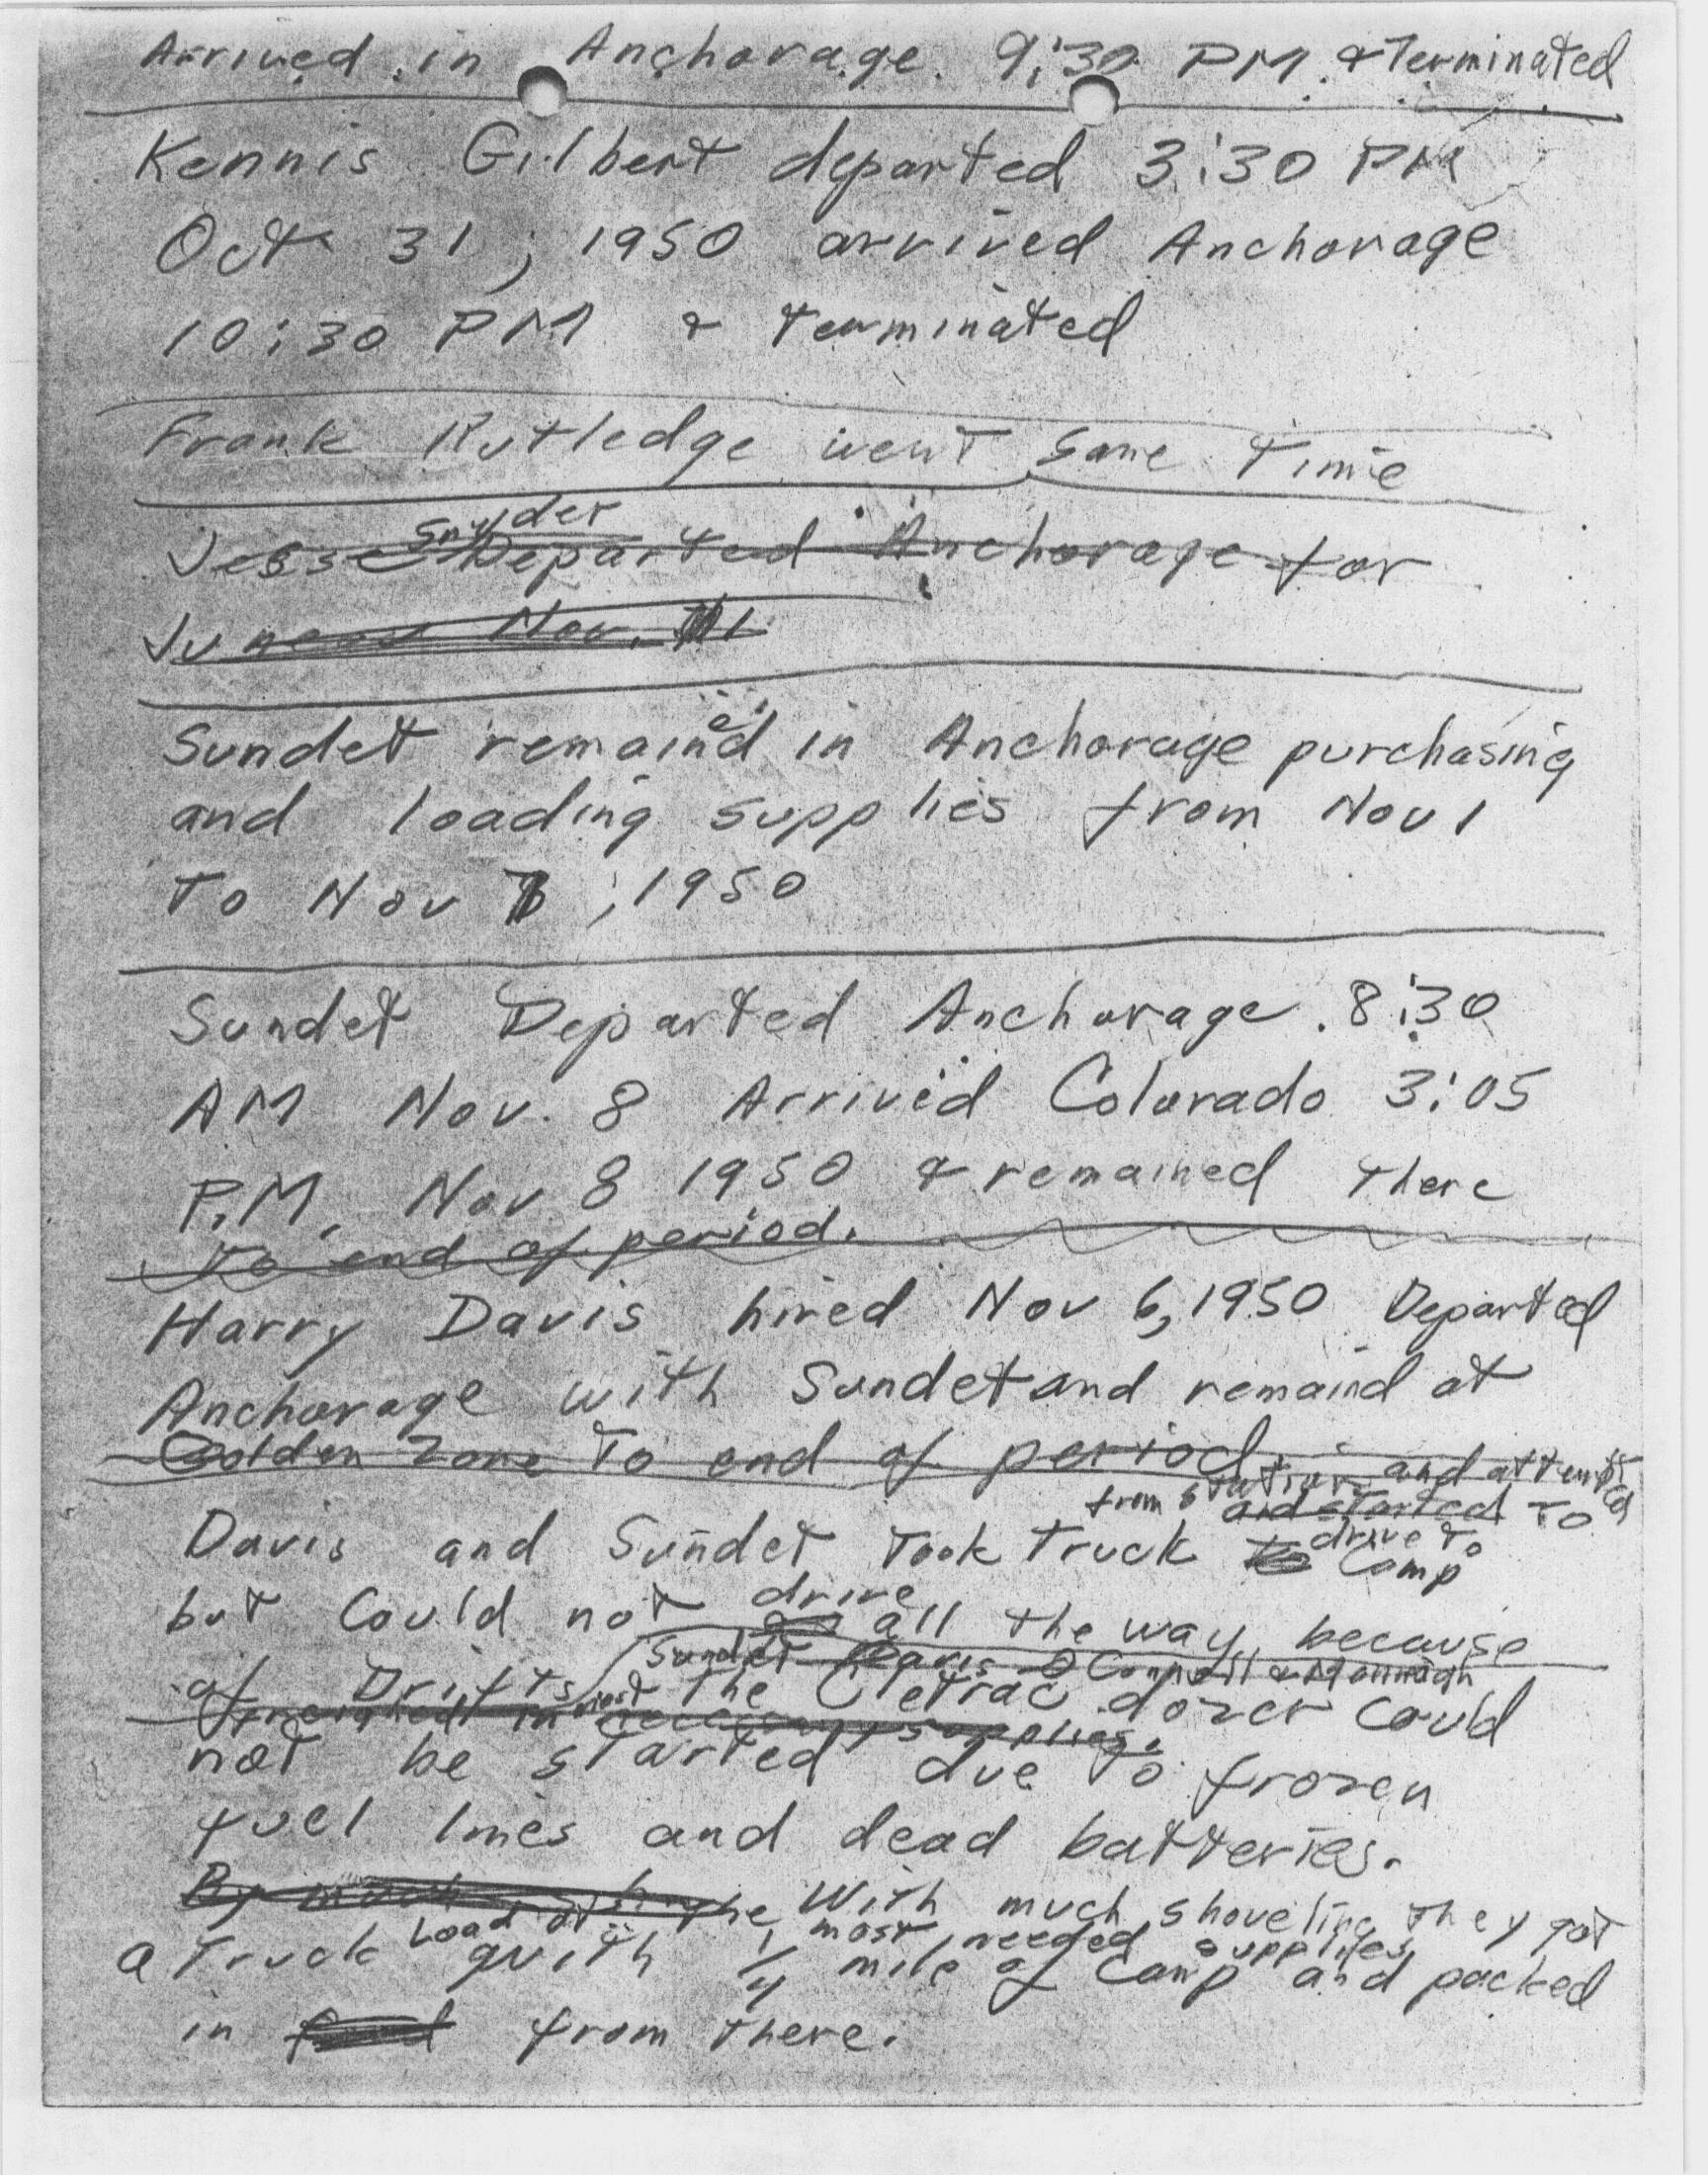 Arrived in Anchorage 9:30 PM. & Terminated
Kennis Gilbert departed 3:30 PM
Oct 31, 1950 arrived Anchorage
10:30 PM & terminated
Frank Rutledge went same time
Snyder
Jesse Departed Anchorage for
Juneau Nov. 11
Sundet remained in Anchorage purchasing
and loading supplies from Nov 1
To Nov , 1950
Sundet Departed Anchorage. 8:30
AM Nov. 8 Arrived Colorado 3:05
P.M. Nov 8 1950 & remained there
to end of period.
Harry Davis hired Nov 6, 1950 Departed
Anchorage with Sundet and remaind at
Golden Zone To end of period
from station and attempted
and started To
Davis and Sundet Took Truck to drive to Camp
but Could not drive all the way, because
Sundet Davis &
of Drifts, the Cletrac dozer could
freighted in most necessary supplies.
not be started due to frozen
fuel lines and dead batteries.
By much With much shoveling they got
Load of most needed supplies
a Truck with 1/4 mile of Camp and packed
in from there.